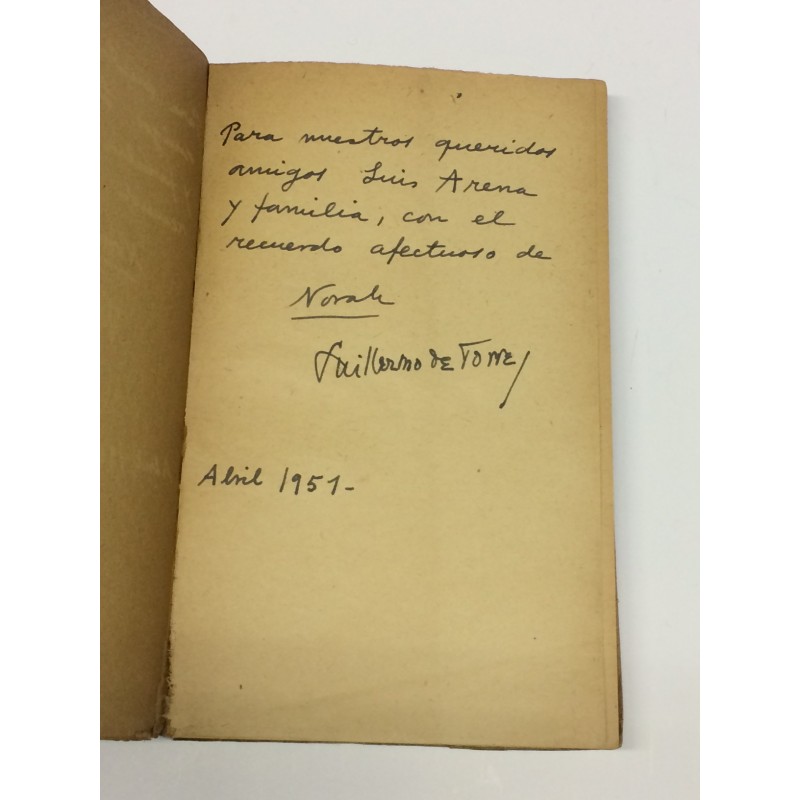 Para nuestros queridos
amigos Luis Arena
y familia, con el
recuerdo afectuoso de
Norah
Guillermo de Torre
Abril 1951-